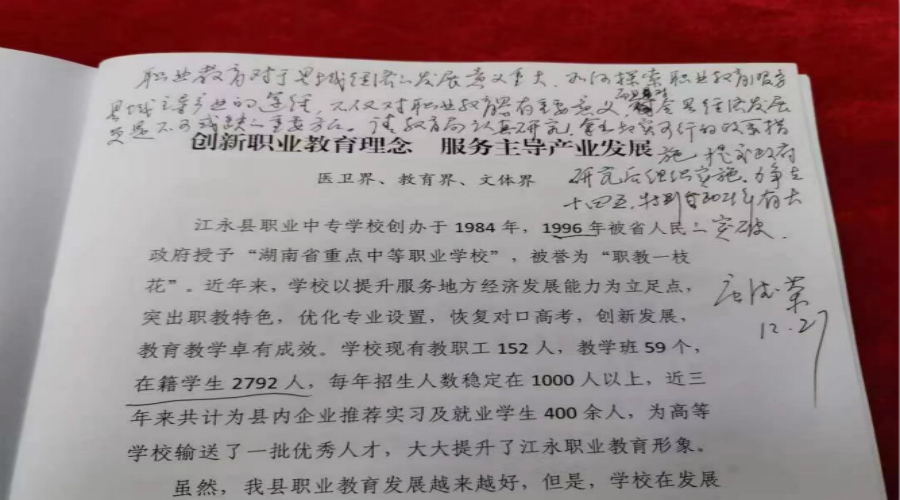 职业教育对于县域经济的发展意义重大，如何探索职业教育服务
县域主导产业的途径，不仅对职业教育具有重要意义，而且对全县经济发展
更是不可或缺的重要方面。请教育局认真研究，拿出切实可行的政策措
创新职业教育理念 服务主导产业发展
施，报市政府
医卫界、教育界、文体界
研究后组织实施，力争在
十四五，特别是2021年有大
江永县职业中专学校创办于 1984 年，1996 年被省人民
的突破。
政府授予“湖南省重点中等职业学校”，被誉为“职教一枝
花”。近年来，学校以提升服务地方经济发展能力为立足点，
突出职教特色，优化专业设置，恢复对口高考，创新发展，
12.27
教育教学卓有成效。学校现有教职工 152 人，教学班 59 个，
在籍学生 2792 人，每年招生人数稳定在 1000 人以上，近三
年来共计为县内企业推荐实习及就业学生 400 余人，为高等
学校输送了一批优秀人才，大大提升了江永职业教育形象。
虽然，我县职业教育发展越来越好，但是，学校在发展